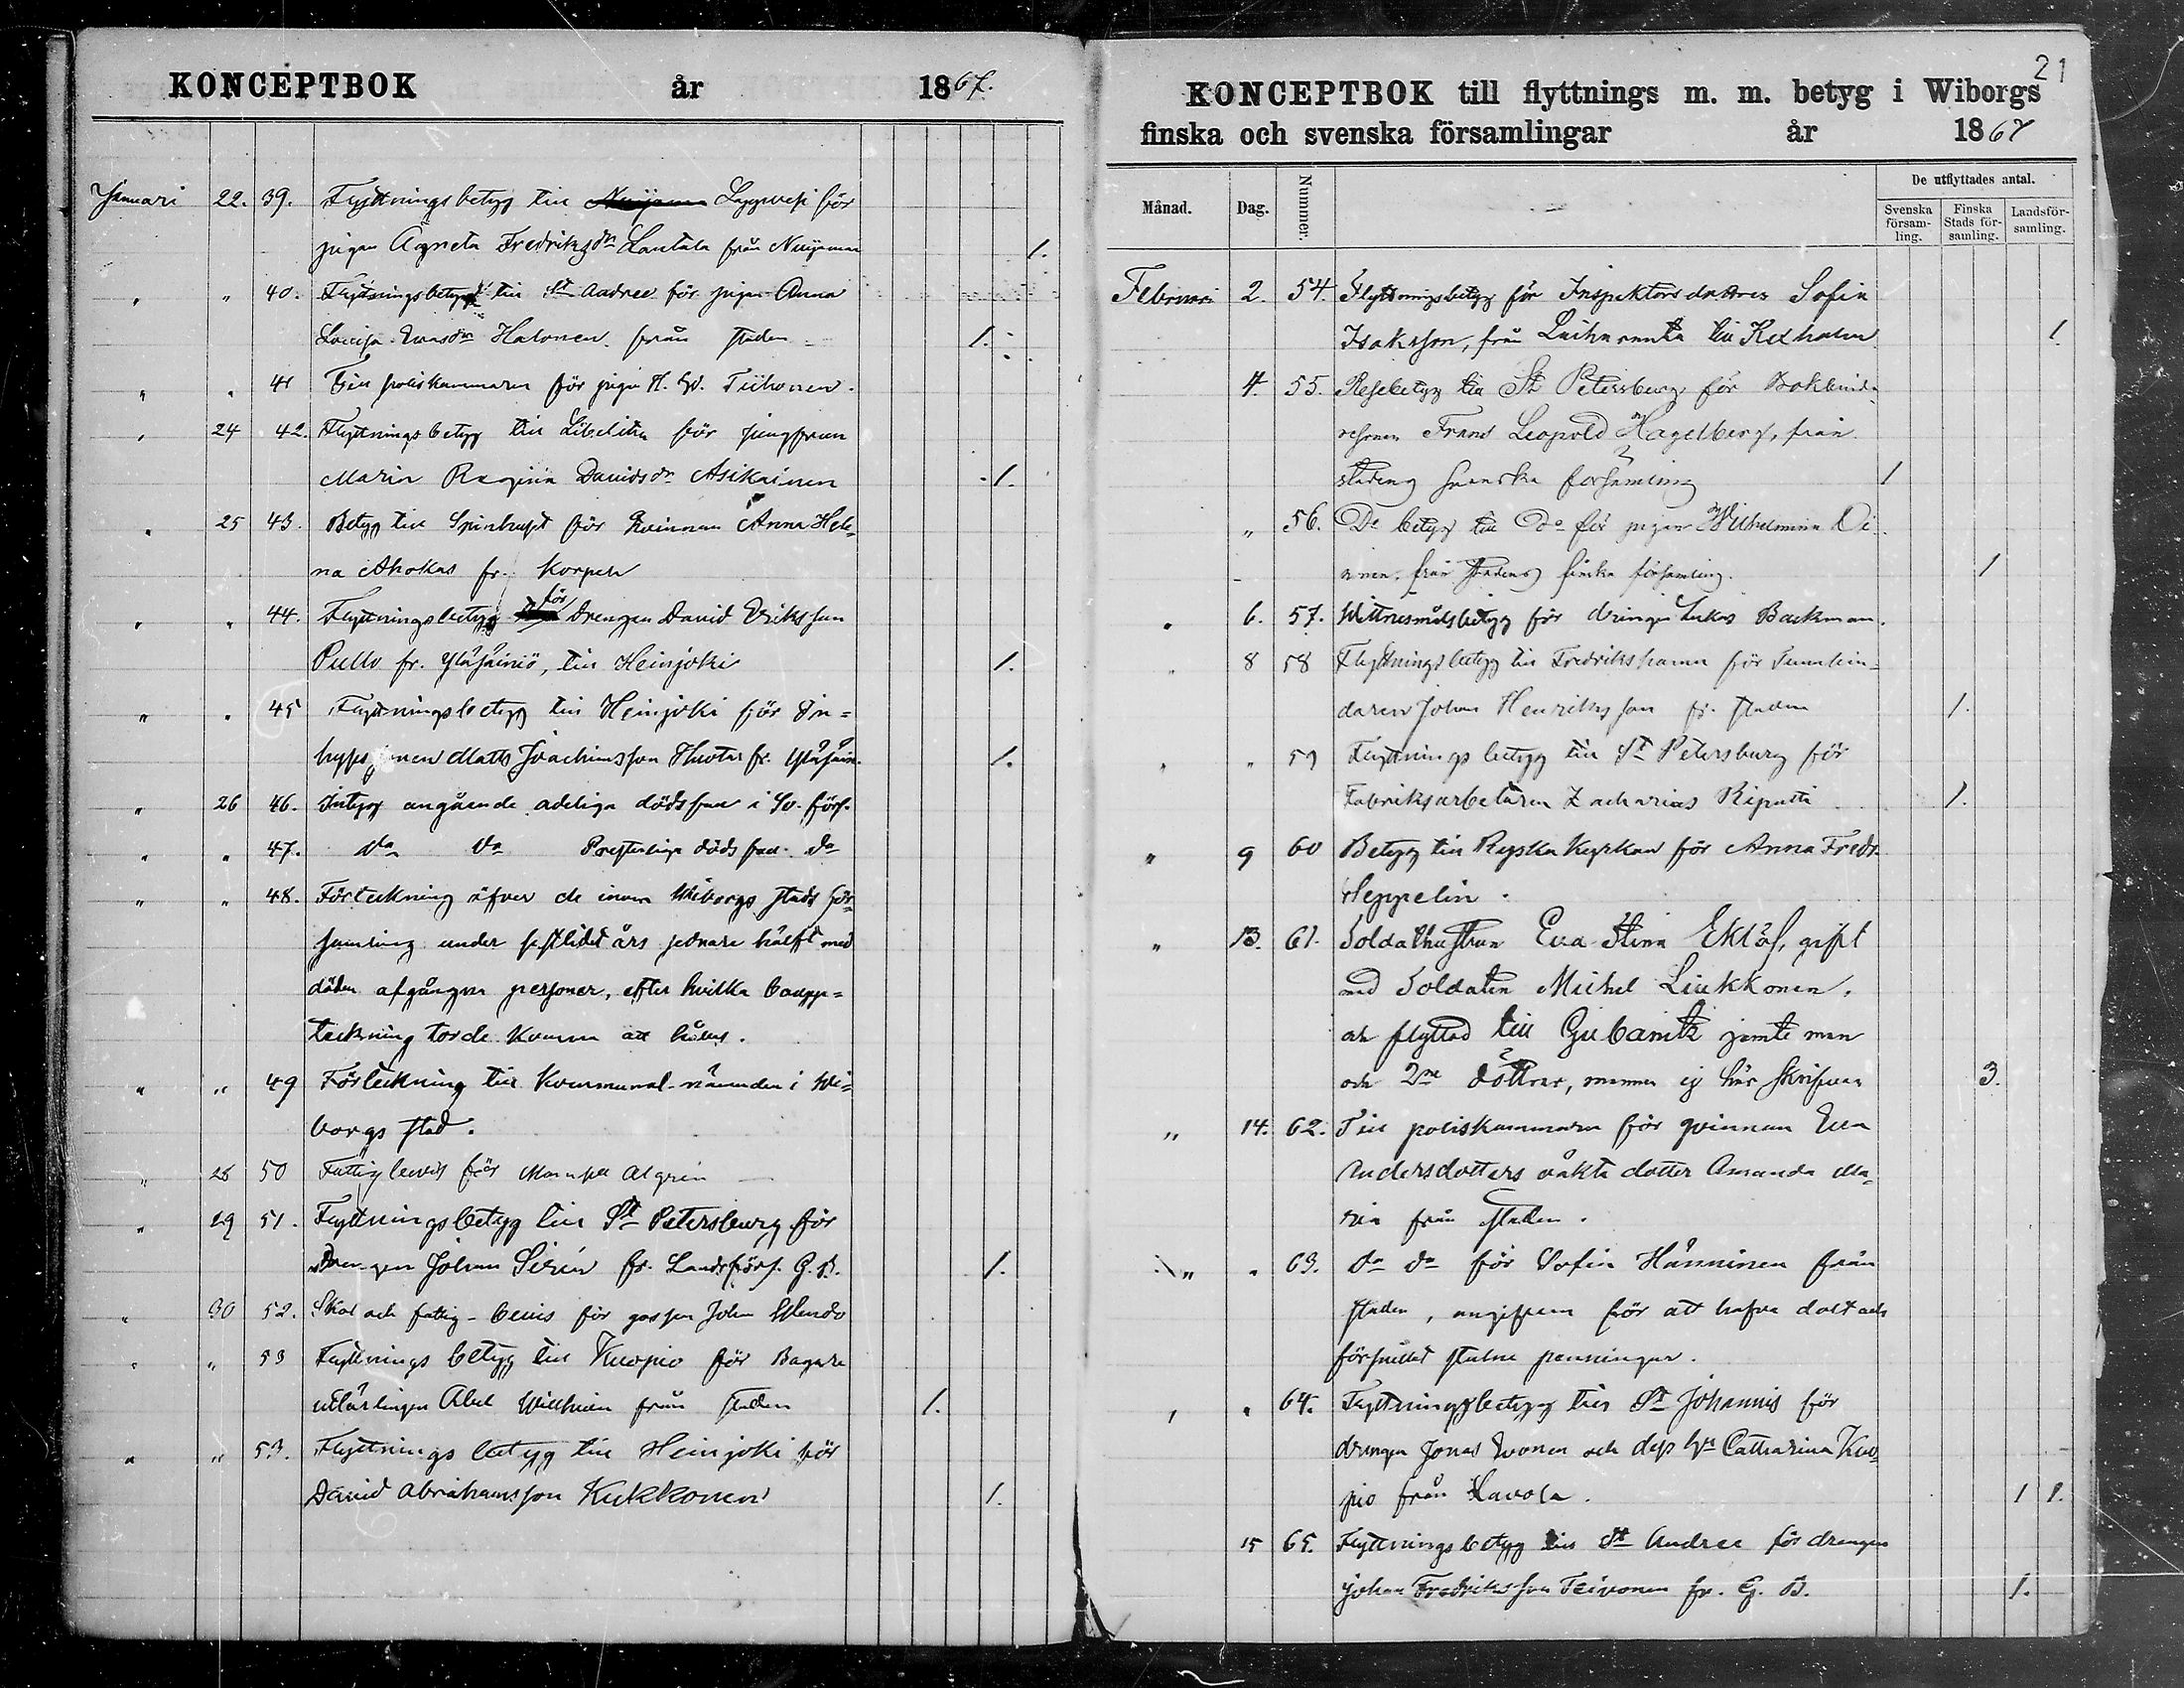 KONCEPTBOK år 1867.
Januari 22. 39. Flyttningsbetyg till Nuijama Lappvesi för
pigan Agneta Fredriksdr Lantala från Nuijamaa 1.
" " 40. Flyttningsbetyg till St Andree för pigan Anna
Lovisa Evasdr Halonen från staden 1.
" " 41 Till poliskammaren för pigan H. Tiihonen.
" 24 42. Flyttningsbetyg till Libelits för jungfrun
Maria Regina Davidsdr Asikainen 1.
" 25 43. Betyg till Spinnhuset för Kvinnan Anna Hele=
na Ahokas fr. Korpela
" " 44. Flyttningsbetyg för Drengen David Eriksson
Pullo fr. Yläsäiniö, till Heinjoki 1.
" " 45 Flyttningsbetyg till Heinjoki för In=
hysesmannen Matts Joachimsson Huotar fr. Yläsäin. 1.
" 26 46. Intyg angående adeliga dödsfall i Sv. förs.
" " 47. do do Presterliga dödsfall do
" " 48. Förteckning öfver de inom Wiborgs stads för=
samling under sistlidet års sednare hälft med
döden afgångna personer, efter hvilka bouppe=
teckning torde komma att hållas.
" " 49 Förteckning till Kommunal-nämnden i Wi=
borgs stad.
" 28 50 Fattigbevis för Algrén
" 29 51. Flyttningsbetyg till St Petersburg för
Drengen Johan Sirén fr. Landsförs. G. B. 1.
" 30 52. Skol och fattig-bevis för gossen Johan
" " 53 Flyttnings betyg till Kuopio för Bagare
utlärlingen Abel från staden 1.
" " 53. Flyttnings betyg till Heinjoki för
David Abrahamsson Kukkonen 1.
21
KONCEPTBOK till flyttnings m. m. betyg i Wiborgs
finska och svenska församlingar år 1867
Månad. Dag. Nummer. De utflyttades antal.
Svenska församling. Finska Stads församling. Landsförsamling.
Februari 2. 54. Flyttningsbetyg för Inspektors dottren Sofia
Isaksson, från Laihananta till Kexholm 1.
4. 55. Resebetyg till St Petersburg för Bokbinda=
resonen Frans Leopold Hagelberg, från
stadens svenska församling 1
" 56. Do betyg till Do för pigan Wilhelmina Oi=
nonen, från stadens finska församling. 1
" 6. 57. Wittnesmålsbetyg för drengen Lukas Backman.
" 8 58 Flyttningsbetyg till Fredrikshamn för
daren Johan Henriksson fr. staden 1.
" " 59 Flyttnings betyg till St Petersburg för
Fabriksarbetaren Zacharias Riputti 1.
" 9 60 Betyg till Ryska Kyrkan för Anna Fredr.
Seppelin.
" 13. 61. Soldathustrun Eva Stina Eklöf, gift
med Soldaten Michel Liukkonen,
och flyttad till Gubanitz jemte man
och 2ne döttrar, mannen ej här skrifven 3.
" 14. 62. Till poliskammaren för qvinnan Eva
Andersdotters oäkta dotter Amanda Ma=
ria från staden.
" " 63. do do för Sofia Hänninen från
staden, angifven för att hafva dolt och
förskillat stulna penningar.
" " 64. Flyttningsbetyg till St Johannis för
drengen Jonas Evonen och dess hu Catharina Kuo=
pio från Kavola. 1 1.
15 65. Flyttningsbetyg till St Andree för drengen
Johan Fredriksson Teivonen fr. G. B. 1.